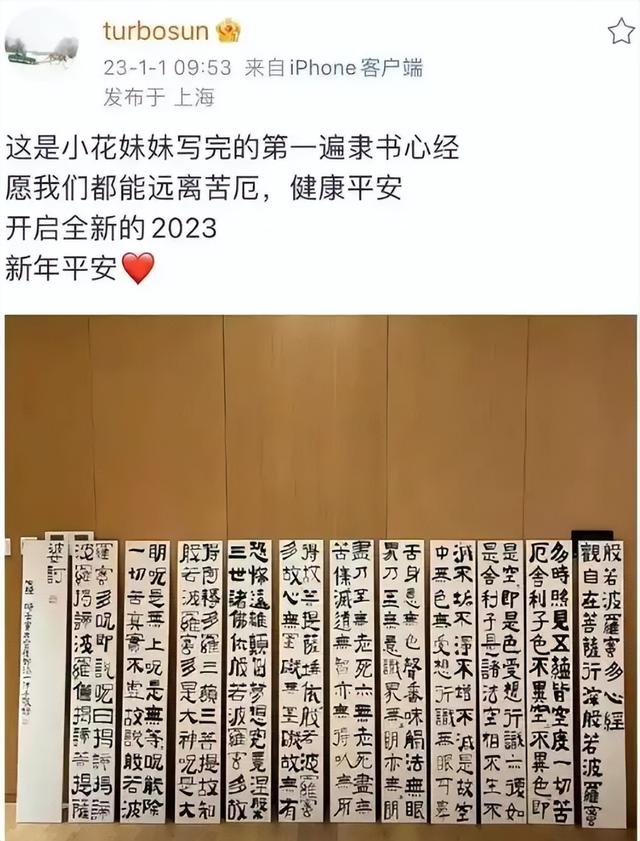 turbosun
23-1-1 09:53 来自 iPhone客户端
发布于 上海
这是小花妹妹写完的第一遍隶书心经
愿我们都能远离苦厄，健康平安
开启全新的2023
新年平安❤️
般若波羅蜜多心經
觀自在菩薩行深般若波羅蜜
多時照見五蘊皆空度一切苦
厄舍利子色不異空不異色即
是空即是色受想行識亦復如
是舍利子是諸法空相不生不
滅不垢不淨不增不減是故空
中無色無受想行識無眼耳鼻
舌身意無色聲香味觸法無眼
界乃至無意識界無無明亦無明
盡乃至無老死亦無老死盡無
苦集滅道無智亦無得以無所
得故菩提薩埵依般若波羅蜜
多故心無罣礙無罣礙故無有
恐怖遠離顛倒夢想究竟涅槃
三世諸佛依般若波羅蜜多故
得阿耨多羅三藐三菩提故知
般若波羅蜜多是大神呪是大
明呪是無上呪是無等呪能除
一切苦真實不虛故說般若波
羅蜜多呪即說呪曰揭諦揭諦
波羅揭諦波羅僧揭諦菩提薩
婆訶
心經